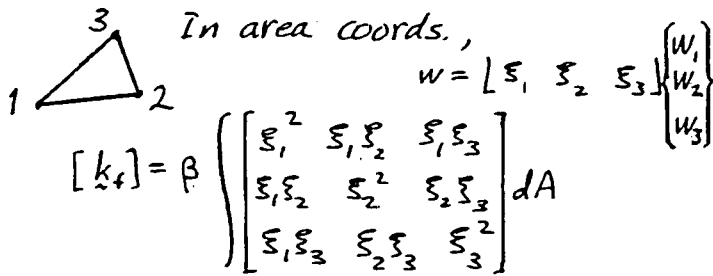 3 In area coords.,
w = ⌊ξ₁ ξ₂ ξ₃⌋ {w₁ w₂ w₃}
1 2
[k_f] = β ∫ [ξ₁² ξ₁ξ₂ ξ₁ξ₃
ξ₁ξ₂ ξ₂² ξ₂ξ₃
ξ₁ξ₃ ξ₂ξ₃ ξ₃²] dA